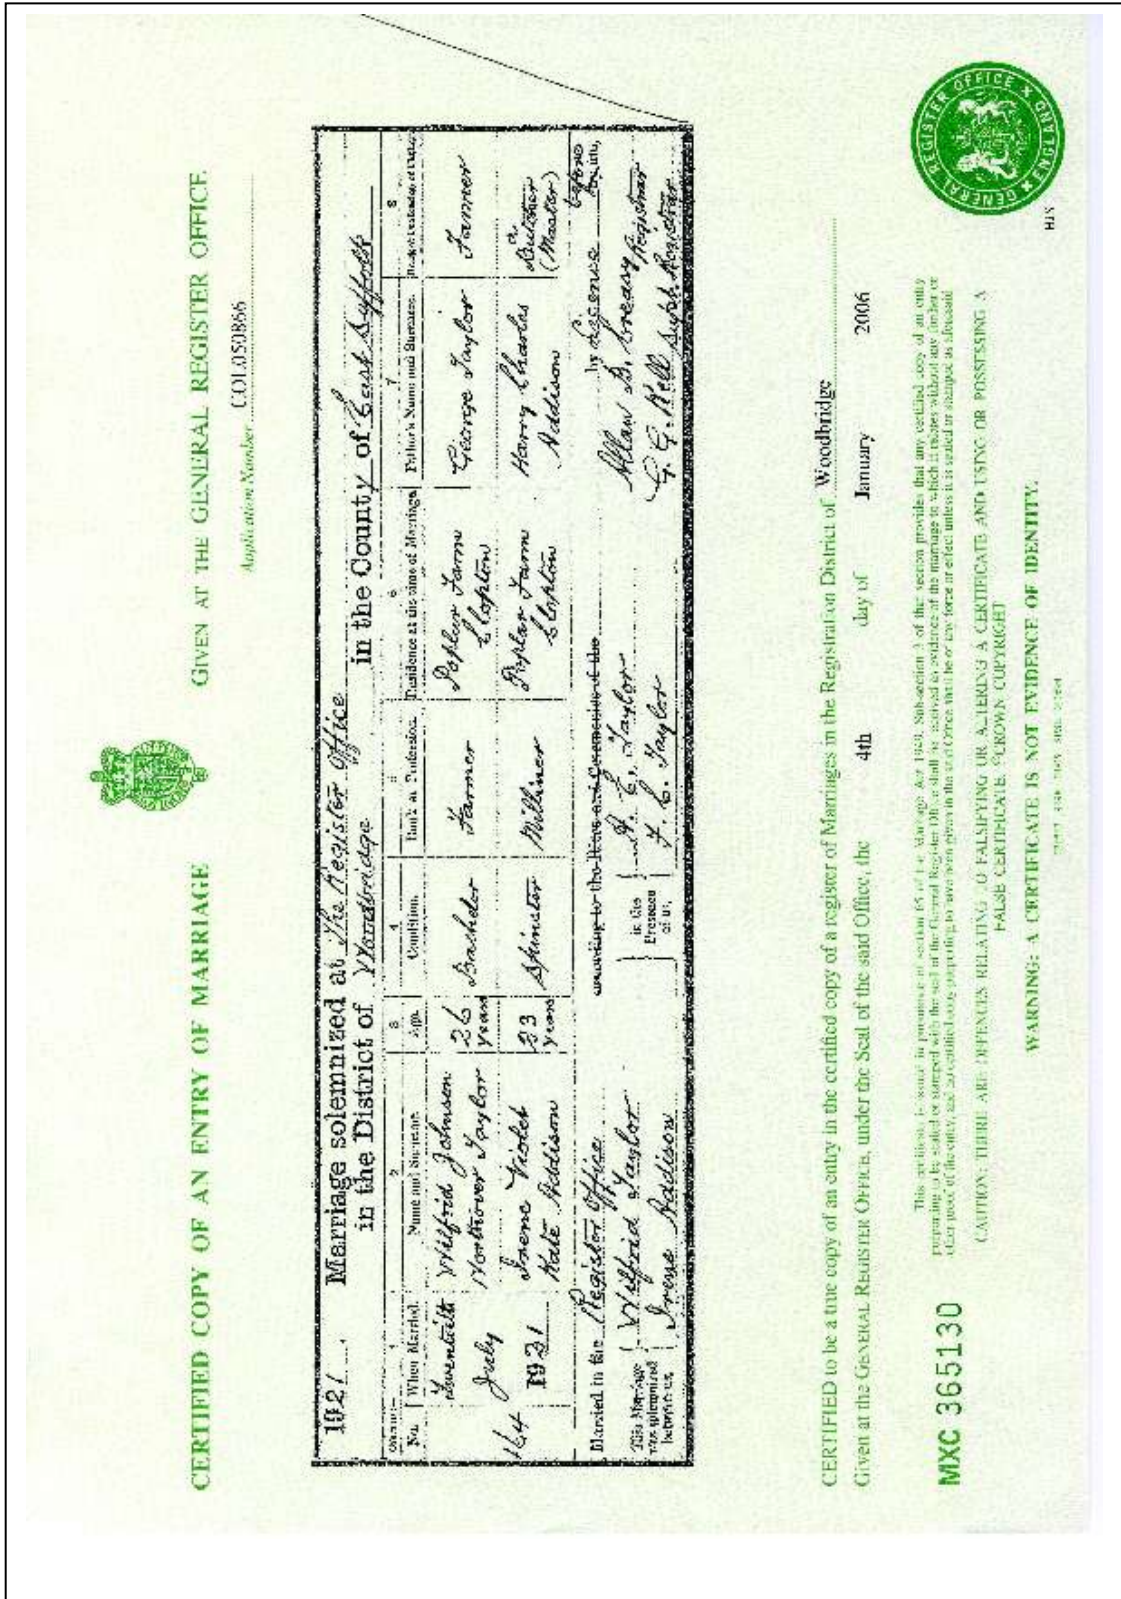 CERTIFIED COPY OF AN ENTRY OF MARRIAGE GIVEN AT THE GENERAL REGISTER OFFICE
Application Number COL050866
1921 Marriage solemnized at The Register Office
in the District of Woodbridge in the County of East Suffolk
1 2 3 4 5 6 7 8
No. When Married. Name and Surname. Age. Condition. Rank or Profession. Residence at the time of Marriage. Father's Name and Surname.
164 Twentieth July 1921
Wilfrid Johnson Northover Taylor 26 years Bachelor Farmer Poplar Farm Clopton George Taylor Farmer
Irene Violet Kate Addison 23 years Spinster Milliner Poplar Farm Clopton Harry Charles Addison a Butcher (Master)
Married in the Register Office according to the Rites and Ceremonies of the by Licence before me,
This Marriage was solemnized between us, Wilfrid Taylor Irene Addison in the Presence of us, A. E. Taylor F. C. Taylor Allan B. Creasy Registrar G. G. Kell Supt Registrar
CERTIFIED to be a true copy of an entry in the certified copy of a register of Marriages in the Registration District of Woodbridge
Given at the GENERAL REGISTER OFFICE, under the Seal of the said Office, the 4th day of January 2006
This certificate is issued in pursuance of section 65 of the Marriage Act 1949. Sub-section 3 of the section provides that any certified copy of an entry
purporting to be sealed or stamped with the seal of the General Register Office shall be received as evidence of the marriage to which it relates without any further or
other proof of the entry, and no certified copy purporting to have been given in the said Office shall be of any force or effect unless it is sealed or stamped as aforesaid.
CAUTION: THERE ARE OFFENCES RELATING TO FALSIFYING OR ALTERING A CERTIFICATE AND USING OR POSSESSING A
FALSE CERTIFICATE. ©CROWN COPYRIGHT
WARNING: A CERTIFICATE IS NOT EVIDENCE OF IDENTITY.
MXC 365130
GENERAL REGISTER OFFICE ENGLAND